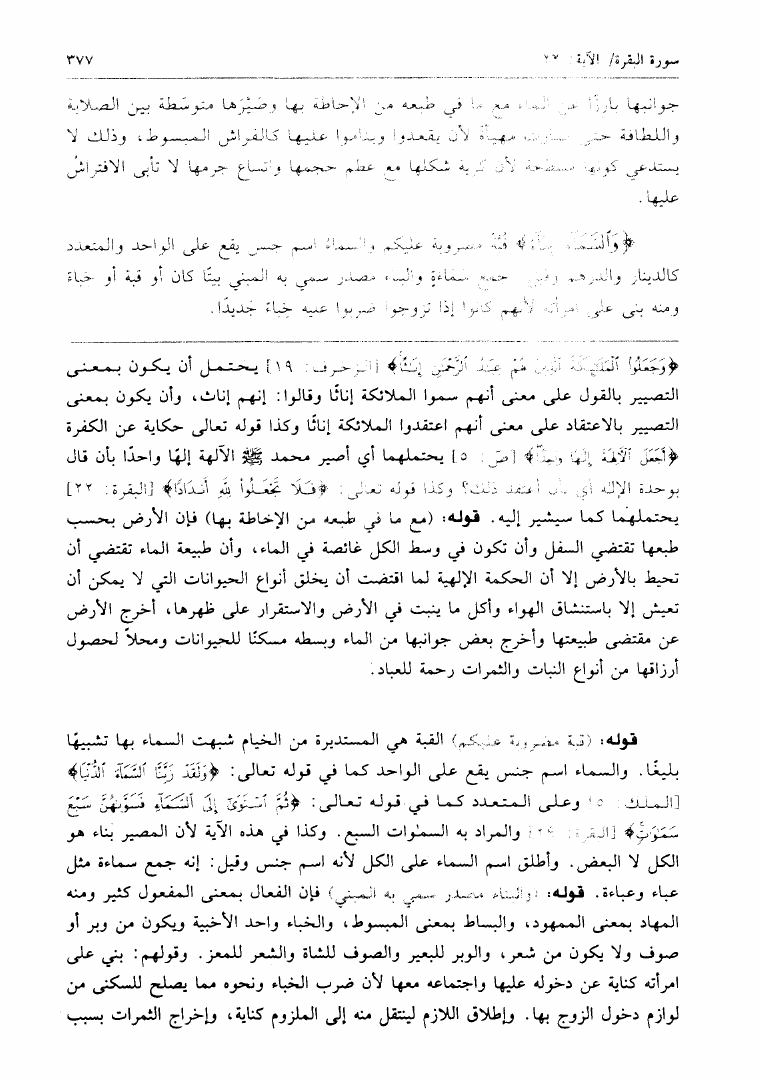 سورة البقرة/ الآية: ٢٢ ٣٧٧
جوانبها بارزًا عن الماء مع ما في طبعه من الإحاطة بها وصَيَّرَها متوسّطة بين الصلابة
واللطافة حتى صارت مهيأة لأن يقعدوا ويناموا عليها كالفراش المبسوط، وذلك لا
يستدعي كونها مسطحة لأن كرية شكلها مع عظم حجمها واتساع جرمها لا تأبى الافتراشُ
عليها.
﴿وَٱلسَّمَآءَ بِنَآءً﴾ قُبَّةً مضروبة عليكم والسماءُ اسم جنس يقع على الواحد والمتعدد
كالدينار والدرهم وقيل جمع سَمَاءَةٍ والبناء مصدر سمي به المبني بيتًا كان أو قبة أو خباءً
ومنه بنى على امرأته لأنهم كانوا إذا تزوجوا ضربوا عليه خِباءً جَديدًا.
﴿وَجَعَلُوا۟ ٱلْمَلَٰٓئِكَةَ ٱلَّذِينَ هُمْ عِبَٰدُ ٱلرَّحْمَٰنِ إِنَٰثًا﴾ [الزخرف: ١٩] يحتمل أن يكون بمعنى
التصيير بالقول على معنى أنهم سموا الملائكة إناثًا وقالوا: إنهم إناث، وأن يكون بمعنى
التصيير بالاعتقاد على معنى أنهم اعتقدوا الملائكة إناثًا وكذا قوله تعالى حكاية عن الكفرة
﴿أَجَعَلَ ٱلْءَالِهَةَ إِلَٰهًا وَٰحِدًا﴾ [ص: ٥] يحتملهما أي أصير محمد ﷺ الآلهة إلهًا واحدًا بأن قال
بوحدة الإله أي بأن اعتقد ذلك؟ وكذا قوله تعالى: ﴿فَلَا تَجْعَلُوا۟ لِلَّهِ أَندَادًا﴾ [البقرة: ٢٢]
يحتملهما كما سيشير إليه. قوله: (مع ما في طبعه من الإحاطة بها) فإن الأرض بحسب
طبعها تقتضي السفل وأن تكون في وسط الكل غائصة في الماء، وأن طبيعة الماء تقتضي أن
تحيط بالأرض إلا أن الحكمة الإلهية لما اقتضت أن يخلق أنواع الحيوانات التي لا يمكن أن
تعيش إلا باستنشاق الهواء وأكل ما ينبت في الأرض والاستقرار على ظهرها، أخرج الأرض
عن مقتضى طبيعتها وأخرج بعض جوانبها من الماء وبسطه مسكنًا للحيوانات ومحلاً لحصول
أرزاقها من أنواع النبات والثمرات رحمة للعباد.
قوله: (قبة مضروبة عليكم) القبة هي المستديرة من الخيام شبهت السماء بها تشبيهًا
بليغًا. والسماء اسم جنس يقع على الواحد كما في قوله تعالى: ﴿وَلَقَدْ زَيَّنَّا ٱلسَّمَآءَ ٱلدُّنْيَا﴾
[الملك: ٥] وعلى المتعدد كما في قوله تعالى: ﴿ثُمَّ ٱسْتَوَىٰٓ إِلَى ٱلسَّمَآءِ فَسَوَّىٰهُنَّ سَبْعَ
سَمَٰوَٰتٍ﴾ [البقرة: ٢٩] والمراد به السمٰوات السبع. وكذا في هذه الآية لأن المصير بناء هو
الكل لا البعض. وأطلق اسم السماء على الكل لأنه اسم جنس وقيل: إنه جمع سماءة مثل
عباء وعباءة. قوله: (والبناء مصدر سمي به المبني) فإن الفعال بمعنى المفعول كثير ومنه
المهاد بمعنى الممهود، والبساط بمعنى المبسوط، والخباء واحد الأخبية ويكون من وبر أو
صوف ولا يكون من شعر، والوبر للبعير والصوف للشاة والشعر للمعز. وقولهم: بني على
امرأته كناية عن دخوله عليها واجتماعه معها لأن ضرب الخباء ونحوه مما يصلح للسكنى من
لوازم دخول الزوج بها. وإطلاق اللازم لينتقل منه إلى الملزوم كناية، وإخراج الثمرات بسبب